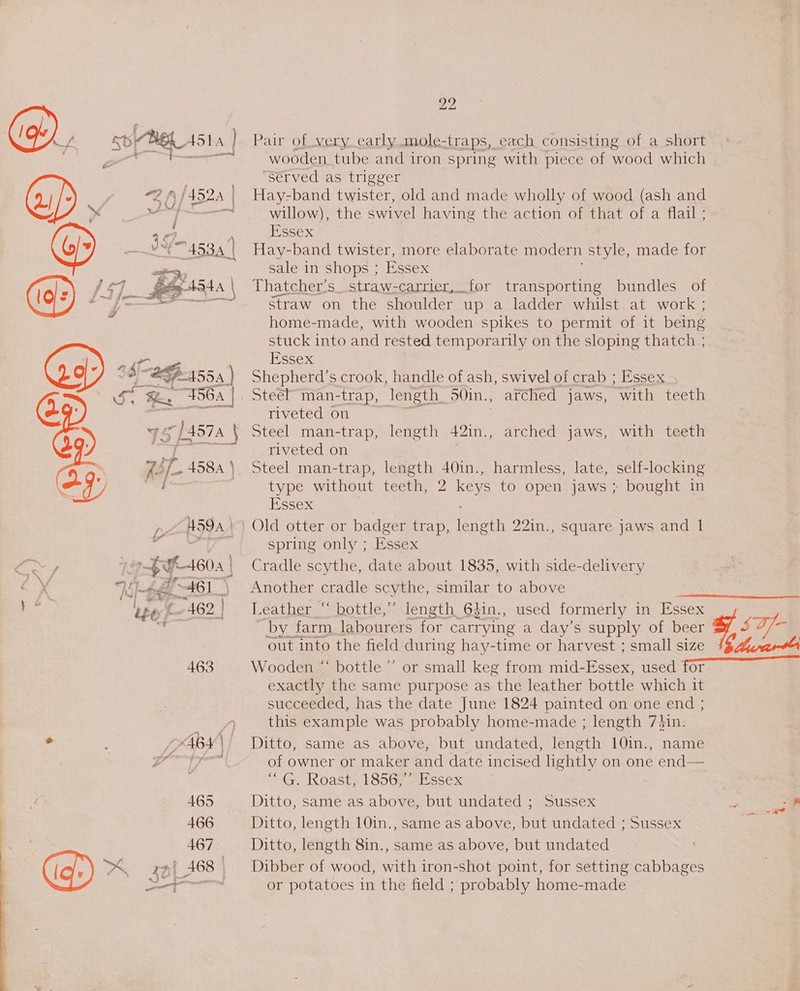 22
451A Pair of very early mole-traps, each consisting of a short
wooden tube and iron spring with piece of wood which
served as trigger
452A Hay-band twister, old and made wholly of wood (ash and
willow), the swivel having the action of that of a flail ;
Essex
453A Hay-band twister, more elaborate modern style, made for
sale in shops ; Essex
454A Thatcher's straw-carrier, for transporting bundles of
straw on the shoulder up a ladder whilst at work ;
home-made, with wooden spikes to permit of it being
stuck into and rested temporarily on the sloping thatch ;
Essex
455A Shepherd's crook, handle of ash, swivel of crab ; Essex
456A Steel man-trap, length 50in., arched jaws, with teeth
riveted on
457A Steel man-trap, length 42in., arched jaws, with teeth
riveted on
458A Steel man-trap, length 40in., harmless, late, self-locking
type without teeth, 2 keys to open jaws ; bought in
Essex
459A Old otter or badger trap, length 22in., square jaws and 1
spring only ; Essex
460A Cradle scythe, date about 1835, with side-delivery
461 Another cradle scythe, similar to above
462 Leather “ bottle,” length 6½in., used formerly in Essex
by farm labourers for carrying a day's supply of beer
out into the field during hay-time or harvest ; small size
463 Wooden “ bottle ” or small keg from mid-Essex, used for
exactly the same purpose as the leather bottle which it
succeeded, has the date June 1824 painted on one end ;
this example was probably home-made ; length 7½in.
464 Ditto, same as above, but undated, length 10in., name
of owner or maker and date incised lightly on one end—
“ G. Roast, 1856,” Essex
465 Ditto, same as above, but undated ; Sussex
466 Ditto, length 10in., same as above, but undated ; Sussex
467 Ditto, length 8in., same as above, but undated
468 Dibber of wood, with iron-shot point, for setting cabbages
or potatoes in the field ; probably home-made